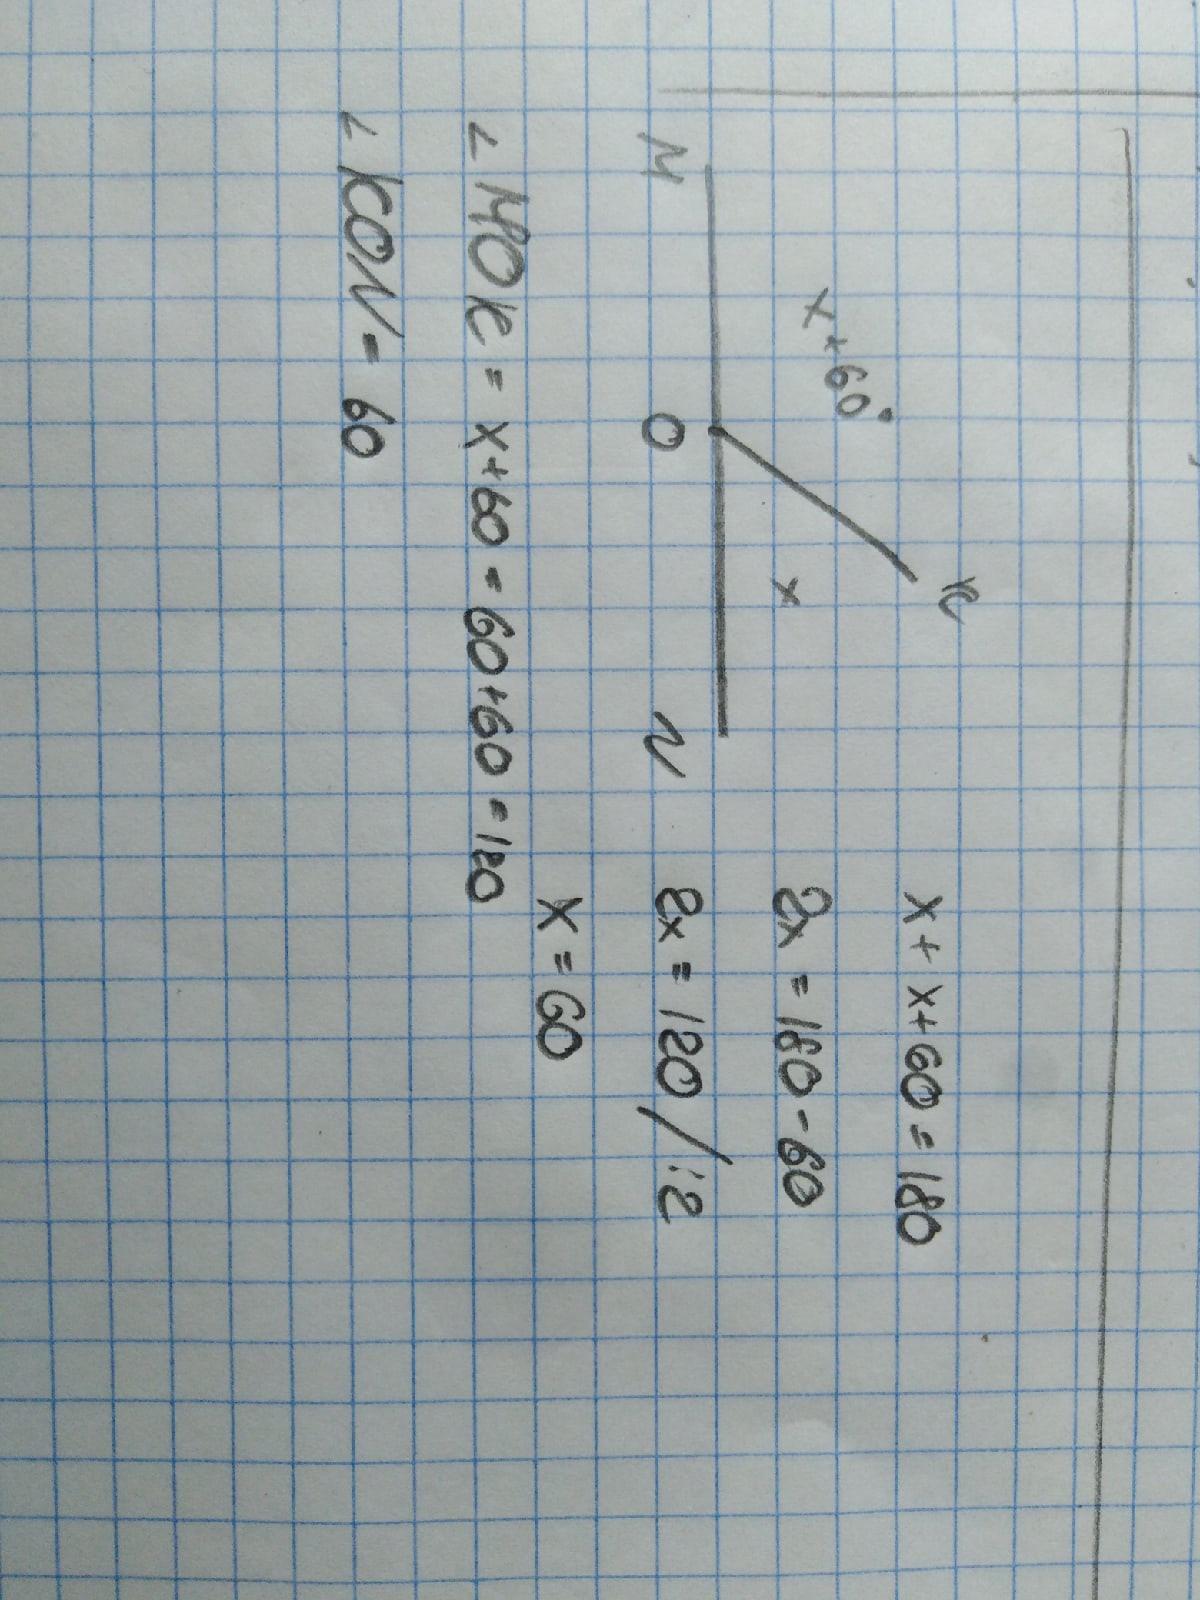 K
x+60°
x
M
O
N
x+x+60=180
2x=180-60
2x=120/:2
x=60
∠MOK=x+60=60+60=120
∠KON=60